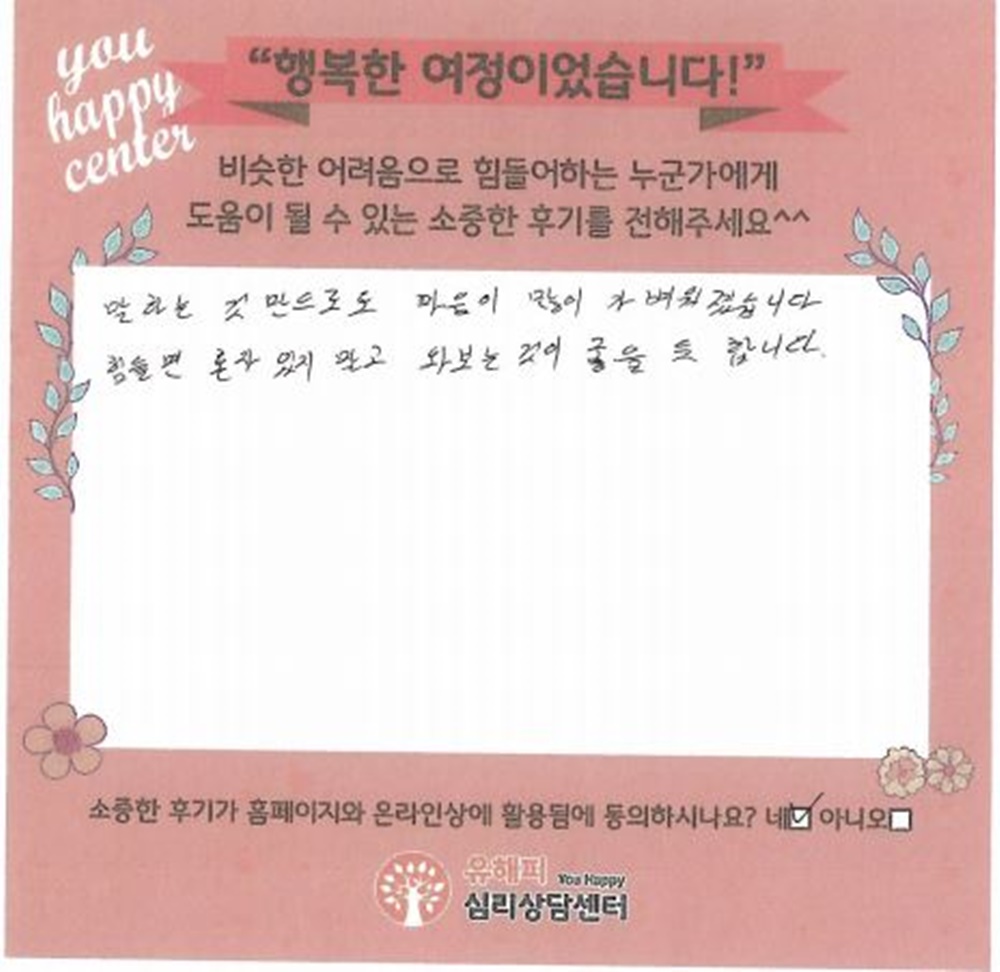 you
happy
center
“행복한 여정이었습니다!”
비슷한 어려움으로 힘들어하는 누군가에게
도움이 될 수 있는 소중한 후기를 전해주세요^^
말하는 것 만으로도 마음이 많이 가벼워졌습니다
힘들면 혼자 있지 말고 와보는 것이 좋을 듯 합니다.
소중한 후기가 홈페이지와 온라인상에 활용됨에 동의하시나요? 네☑ 아니오☐
유해피 You Happy
심리상담센터